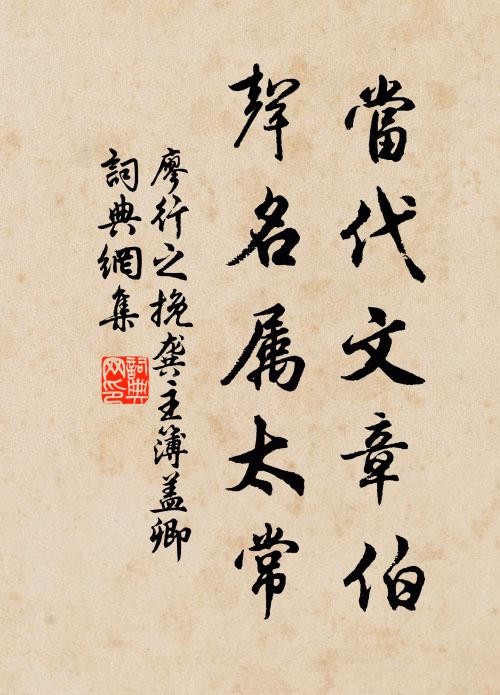 當代文章伯
聲名属太常
廖行之挽龚主簿盖卿
詞典網集
詞典
网印